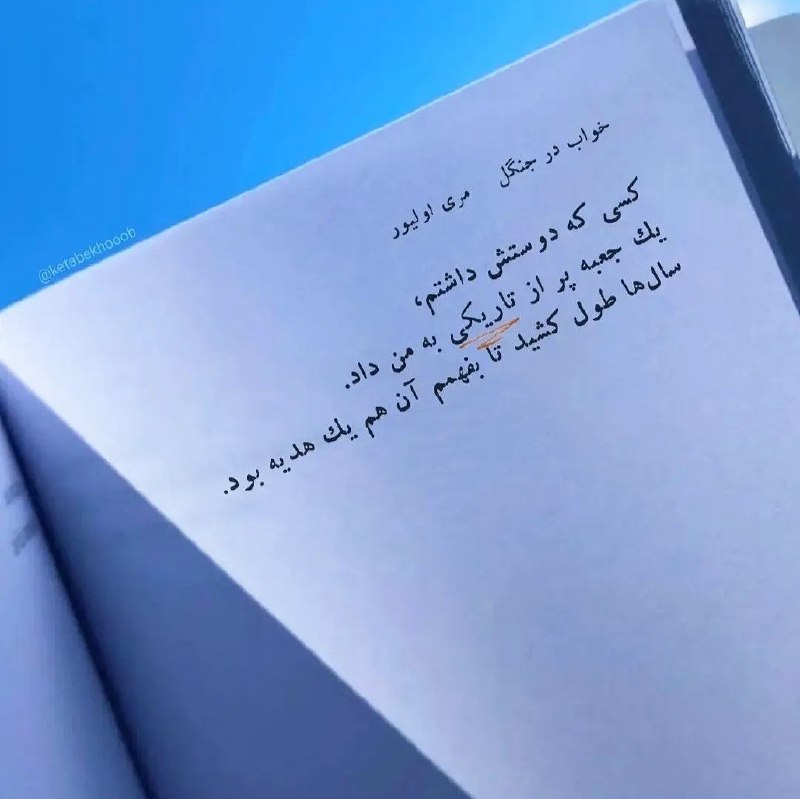 خواب در جنگل مری اولیور
کسی که دوستش داشتم،
یك جعبه پر از تاریکی به من داد.
سال‌ها طول کشید تا بفهمم آن هم یك هدیه بود.
@ketabekhooob